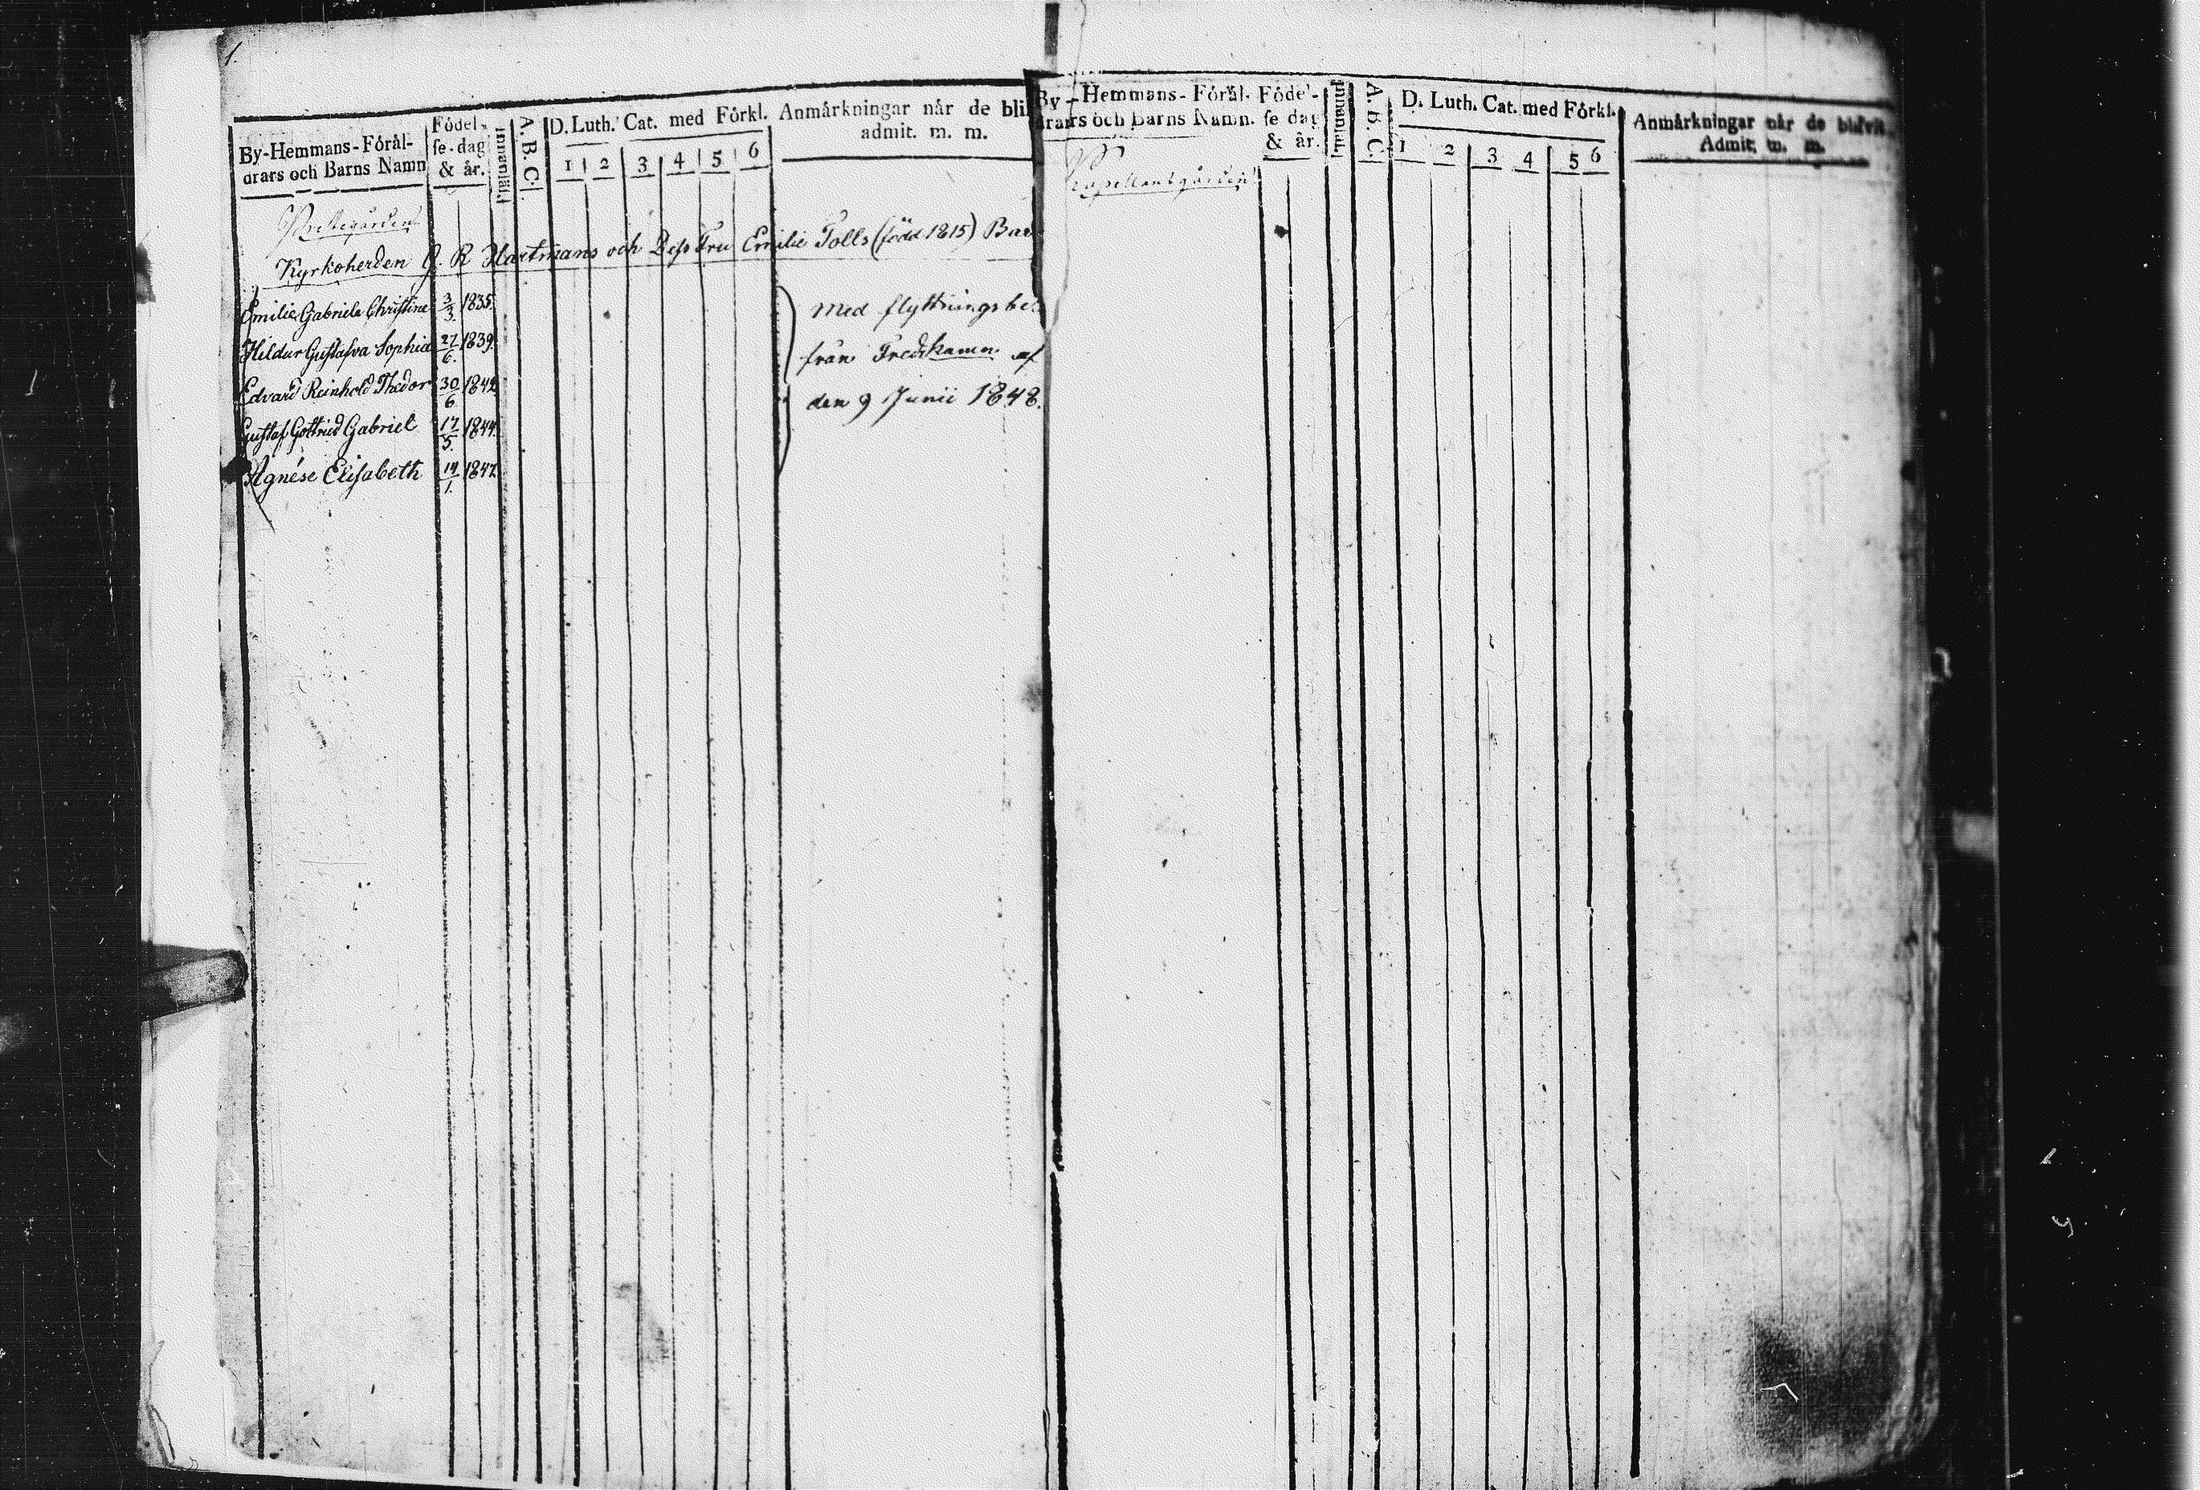 1.
By-Hemmans-Föräl-
drars och Barns Namn
Födel-
se-dag
& år.
Innanläsn.
A. B. C.
D. Luth. Cat. med Förkl.
1 2 3 4 5 6
Anmärkningar när de bli
admit. m. m.
Prestegården
Kyrkoherden G. R Hartmans och Dess Fru Emilie Tolls (född 1815) Bar
Emilie Gabriela Christina 3/3 1835.
Hildur Gustafva Sophia 27/6. 1839.
Edvard Reinhold Thedor 30/6 1842
Gustaf Gottfried Gabriel 17/5. 1844.
Agnése Elisabeth 19/1. 1847.
Med flyttningsbe
från Fredrikshamn af
den 9 Junii 1848.
By-Hemmans-Föräl-
drars och Barns Namn.
Födel-
se dag
& år.
Innanläsn.
A. B. C.
D. Luth. Cat. med Förkl.
1 2 3 4 5 6
Anmärkningar när de blifvit
Admit. m. m.
Kapellansgården